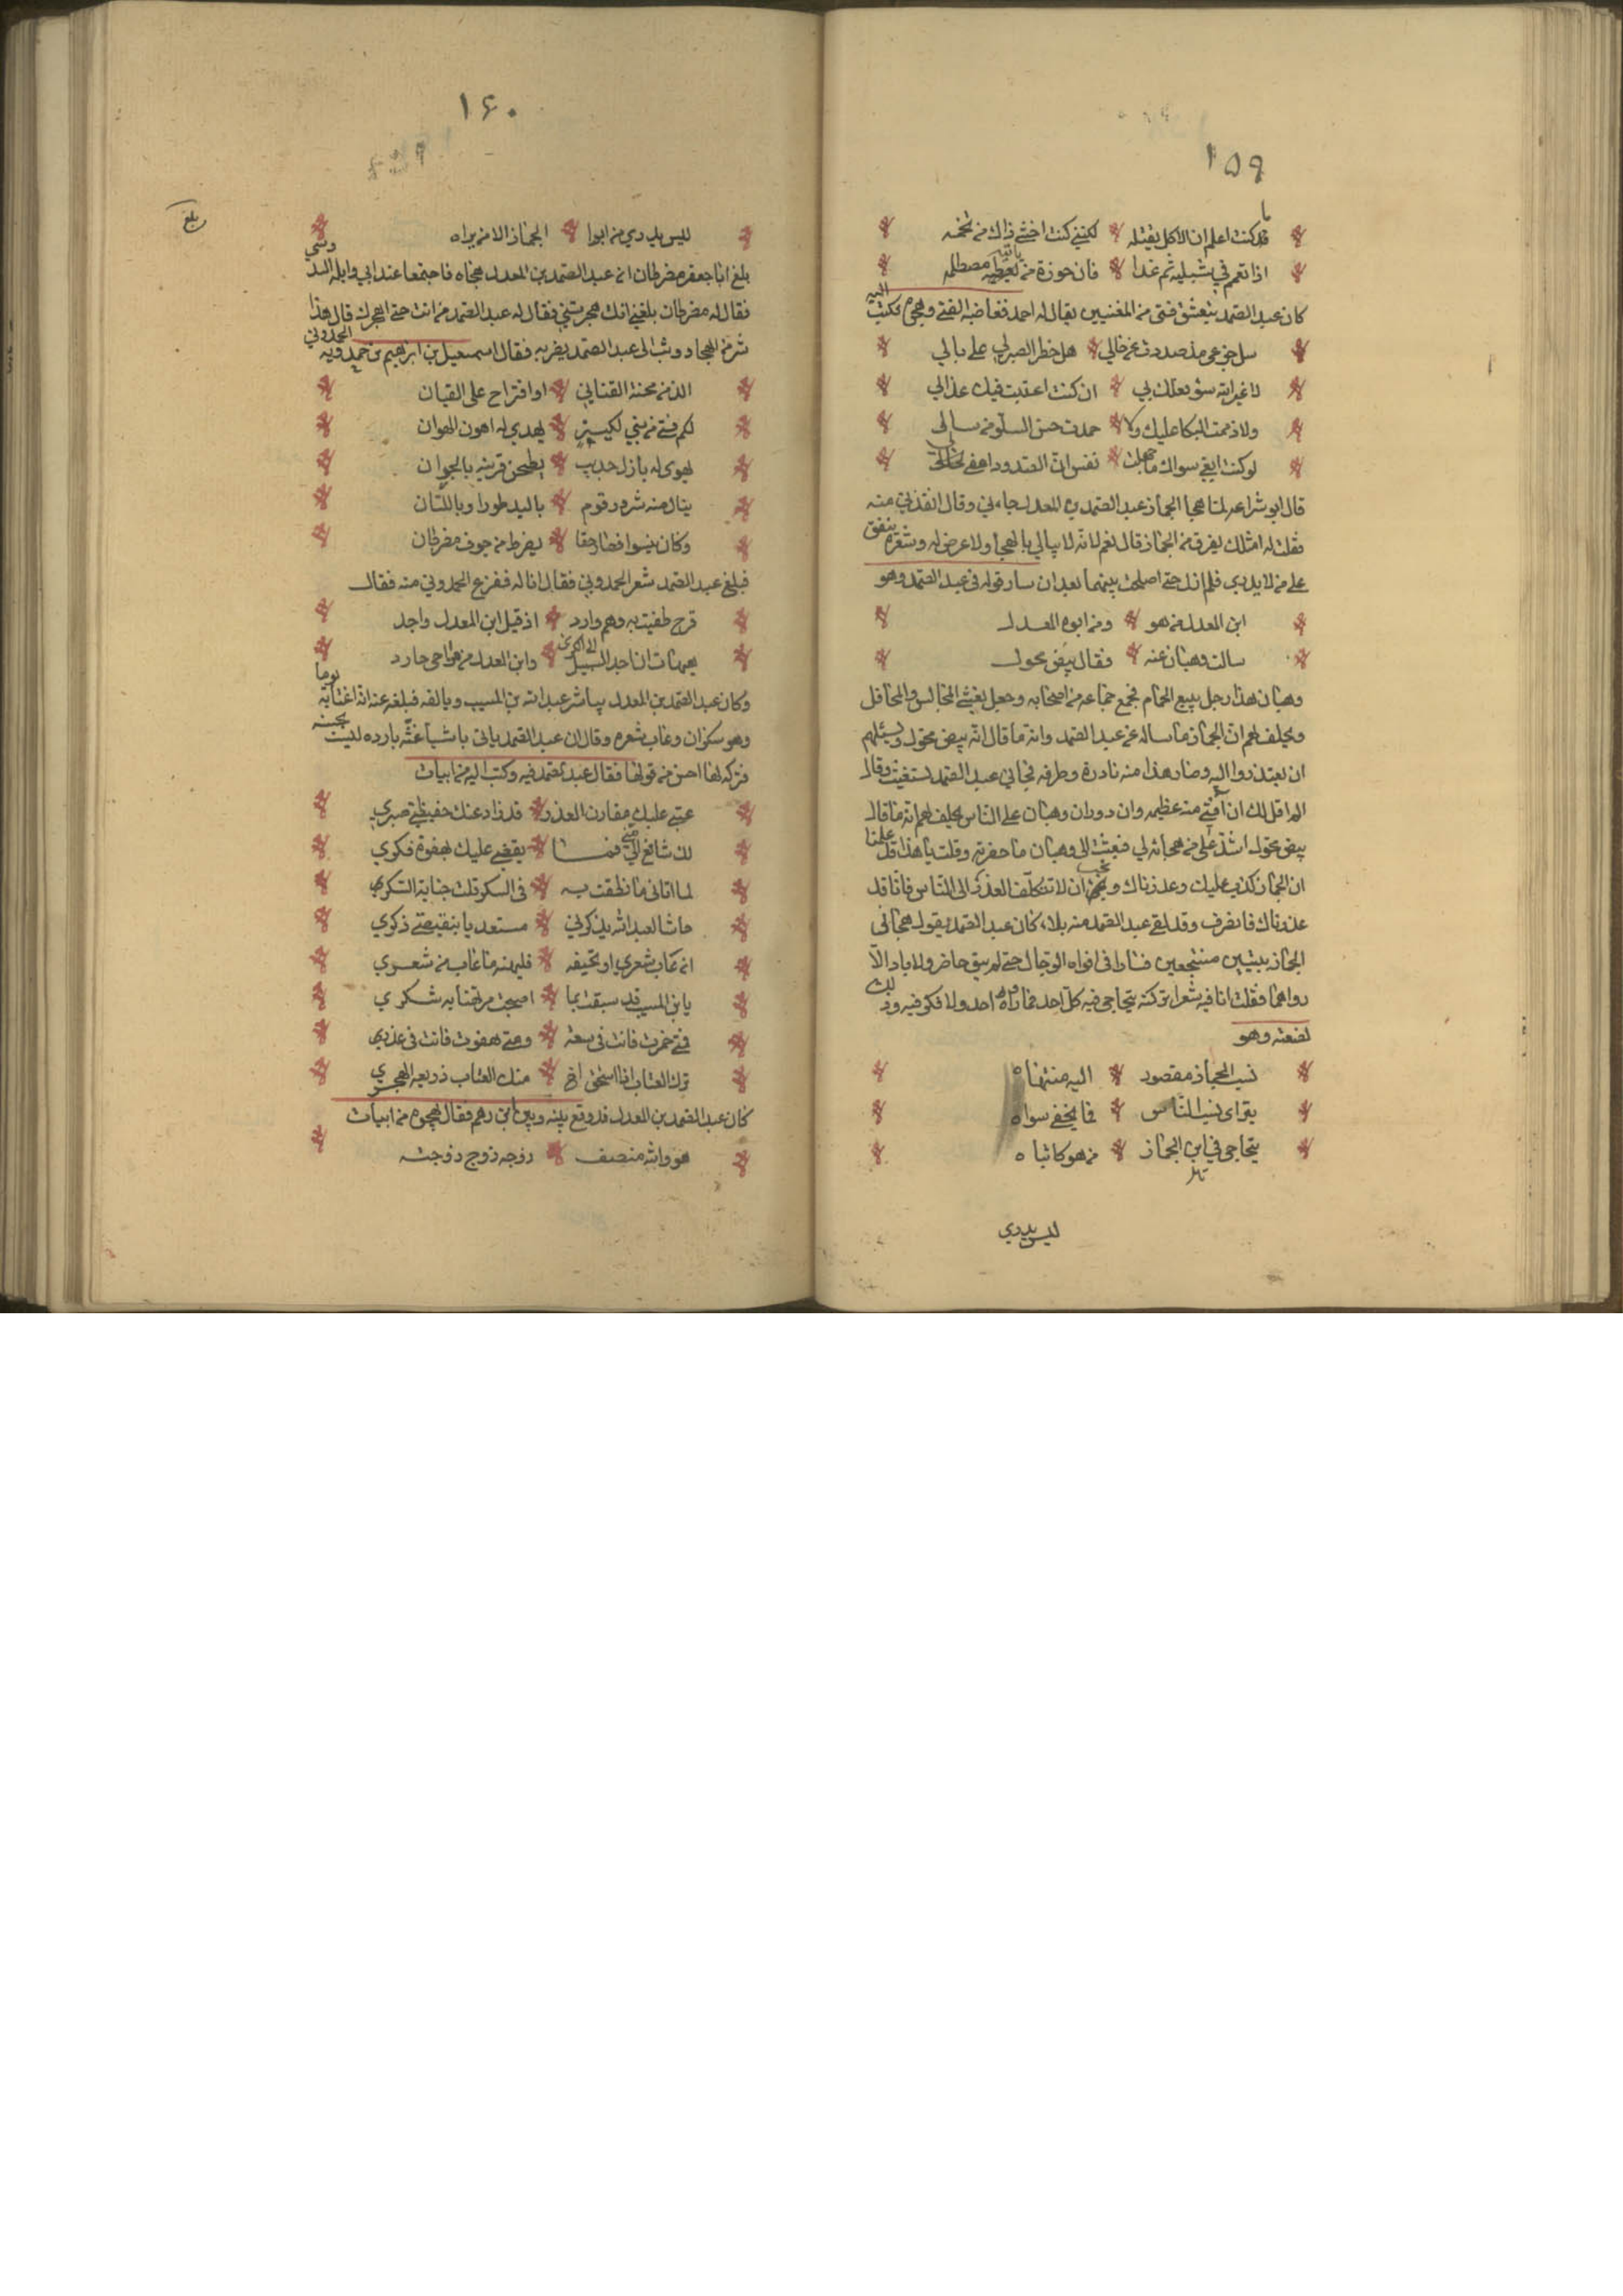 ١٥٩
ما
قد كنت اعلم ان الاكل يقتله لكنني كنت اخشى ذاك من تخمه
اذا تعمم في شبليه ثم غدا فان حوزة من
كان عبد الصمد يتعشق فتى من المغنيين يقال له احمد فغاضبه الفتى وهجره فكتب اليه
سل جزعي مذ صددت عن حالي هل خطر الصبر لي على بالي
لا غير الله سؤ فعلك بي ان كنت اعتبت فيك عذالي
ولا ذممت البكا عليك ولا حمدت حسن السلو من سالي
لو كنت ابغي سواك ما جهلت نفسي ان الصدود اعفى لي
قال ابو شراعه لما هجا الجماز عبد الصمد بن المعدل جاءني وقال انقذني منه
فقلت له امثلك يفرق من الجماز قال نعم لانه لا يبالي بالهجا ولا عرض له وشعره ينفق
على من لا يدري فلم ازل حتى اصلحت بينهما بعد ان سار قوله في عبد الصمد وهو
ابن المعدل من هو ومن ابوه المعدل
سالت وهبان عنه فقال بيض محول
وهبان هذا رجل يبيع الحمام فجمع جماعه من اصحابه وجعل يغشى المجالس والمحافل
ويحلف لهم ان الجماز ما ساله عن عبد الصمد وانه ما قال انه بيض محول ويسئلهم
ان يعتذروا اليه وصار هذا منه نادرة وطرفه فجاني عبد الصمد يستغيث وقال
الم اقل لك ان آفتي منه عظيمه وان دوران وهبان على الناس يحلف لهم انه ما قال
بيض محول اشد علي من هجائه لي فبعثت الى وهبان فاحضرته وقلت يا هذا قد علمنا
ان الجماز كذب عليك وعذرناك ونحب ان لا تتكلف العذر الى الناس فانا قد
عذرناك فانصرف وقد لقي عبد الصمد منه بلاء كان عبد الصمد يقول هجاني
الجماز ببيتين فسارا في افواه الرجال حتى لم يبق حاضر ولا باد الا
رواهما فقلت انا فيه شعرا تركته يتحاجى فيه كل احد فما رواه احد ولا فكر فيه وذلك
لضعته وهو
نسب الجماز مقصور اليه منتهاه
يتراى نسب الناس فما يخفى سواه
يتحاجى في ابن الجماز من هو كاتباه
ليس يدري
١٦٠
بلغ
ليس يدري من ابوا الجماز الا من يراه
بلغ ابا جعفر مضرطان ان عبد الصمد بن المعدل هجاه فاجتمعا عند ابي وايله السدوسي
فقال له مضرطان بلغني انك هجوتني فقال له عبد الصمد من انت حتى اهجوك قال هذا
شر من الهجا ووثب الى عبد الصمد يضربه فقال اسمعيل بن ابراهيم بن حمدويه الحمدوني
الذ من محنة القناني او اقتراح على القيان
لكم فتى من بني لكيز يهدي له اهون الهوان
يهوى له بازل خدب يطحن قرنيه بالجران
ينال منه شرور قوم باليد طورا وباللسان
وكان يفسوا فصار حقا يضرط من جوف مضرطان
فبلغ عبد الصمد شعر الحمدوني فقال انا له ففزع الحمدوني منه فقال
قرح طفيت به وهم وارد اذ قيل ابن المعدل واجد
هيهات ان اجد السبيل الى الكرى وابن المعدل من مزاحي حارد
وكان عبد الصمد بن المعدل يعاشر عبد الله بن المسيب ويالفه فبلغه عنه انه اغتابه يوما
وهو سكران وعاب شعره وقال ان عبد الصمد ياتي باشيا غثه بارده ليست بحسنه
فتركه لها احسن من قولها فقال عبد الصمد فيه وكتب اليه من ابيات
عتبي عليك مقارن العذر قد زاد عنك حفيظتي صبري
لك شافع مني الي فما يقضي عليك بهفوة فكري
لما اتاني ما نطقت به في السكر قلت جناية السكر
حاشا لعبد الله يذكرني مستعذبا بنقيصتي ذكري
ان عاب شعري او تحيفه فليهنه ما عاب من شعري
يابن المسيب قد سبقت بما اصبحت مرتهنا به شكري
فمتى خمرت فانت في سعة ومتى هفوت فانت في عذري
ترك العتاب اذا استحق اخ منك العتاب ذريعه الهجر
كان عبد الصمد بن المعدل قد وقع بينه وبين ابن رهم فقال يهجوه من ابيات
هو والله منصف زوجه زوج زوجته